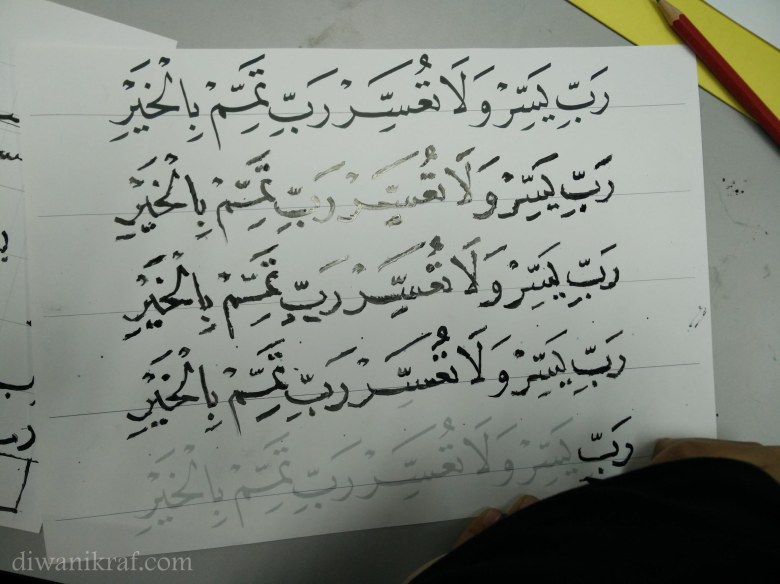 رَبِّ يَسِّرْ وَلَا تُعَسِّرْ رَبِّ تَمِّمْ بِالْخَيْرِ
رَبِّ يَسِّرْ وَلَا تُعَسِّرْ رَبِّ تَمِّمْ بِالْخَيْرِ
رَبِّ يَسِّرْ وَلَا تُعَسِّرْ رَبِّ تَمِّمْ بِالْخَيْرِ
رَبِّ يَسِّرْ وَلَا تُعَسِّرْ رَبِّ تَمِّمْ بِالْخَيْرِ
رَبِّ يَسِّرْ وَلَا تُعَسِّرْ رَبِّ تَمِّمْ بِالْخَيْرِ
diwanikraf.com